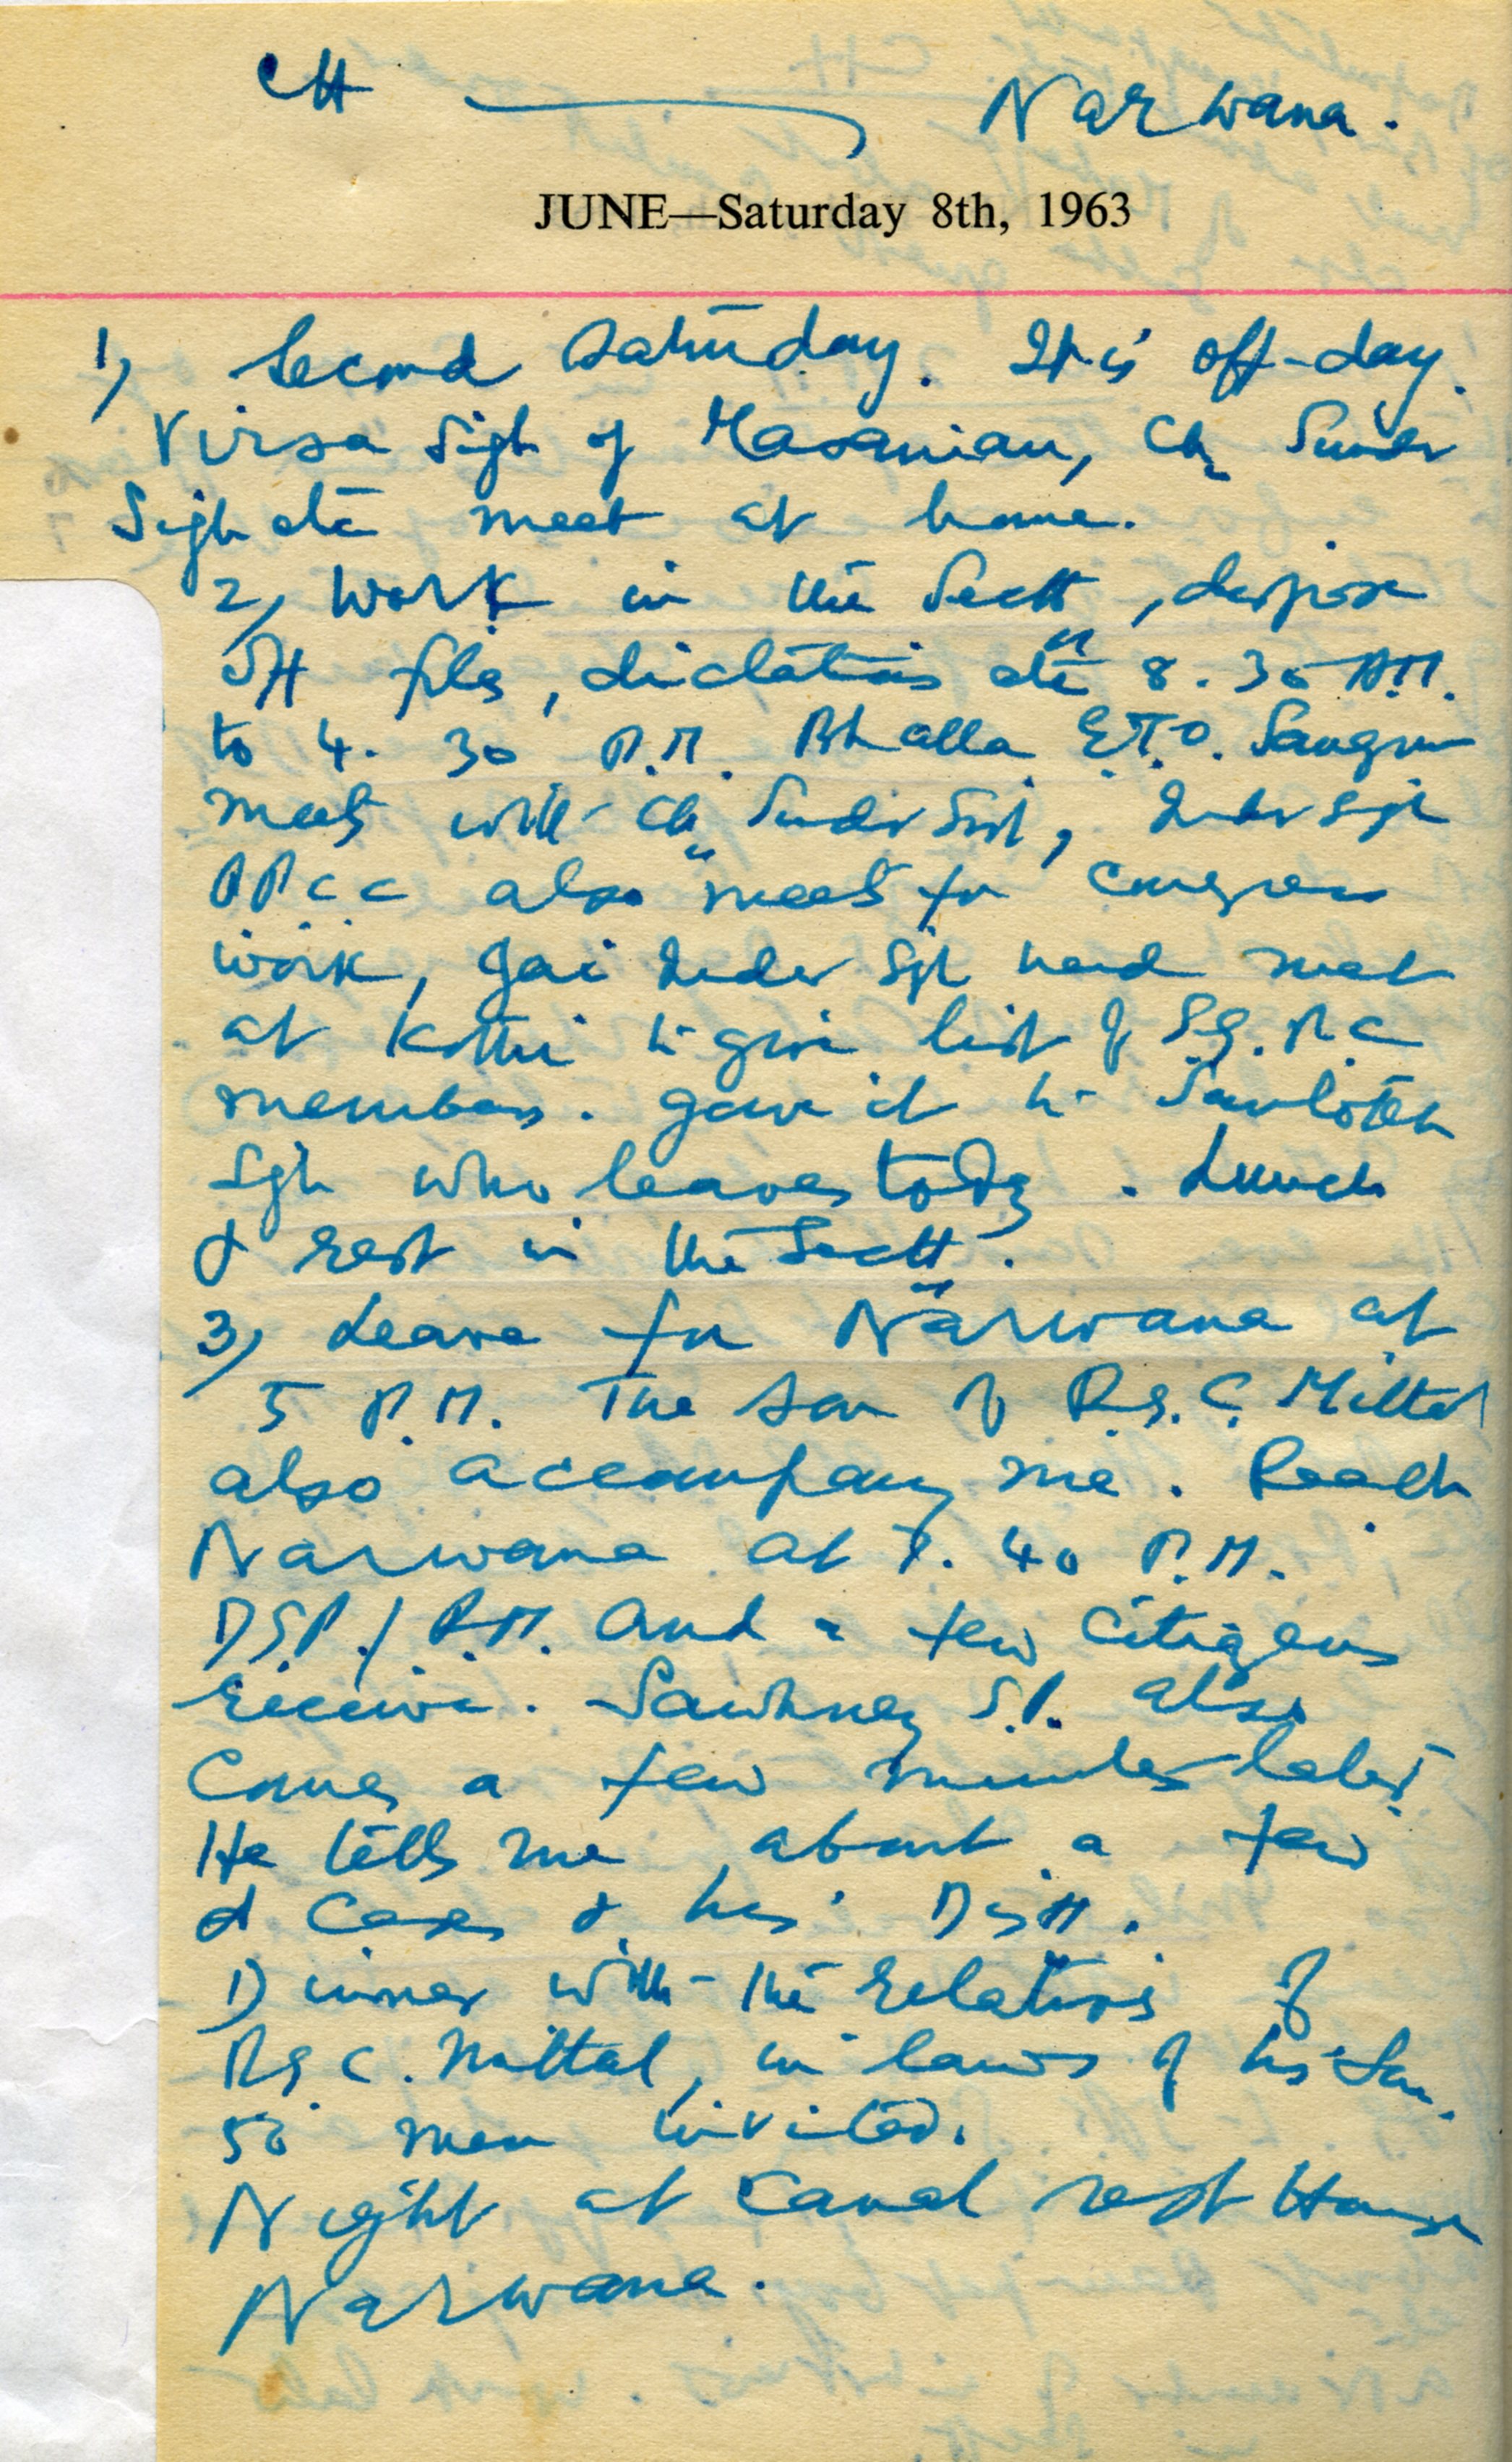 CH Narwana.
JUNE—Saturday 8th, 1963
1) Second Saturday. It is off-day.
Virsa Sigh of Masanian, Ch Sunder
Sigh etc meet at home.
2) Work in the Sectt, dispose
off files, dictations etc 8.30 A.M.
to 4.30 P.M. Bhalla E.T.O. Sangrur
meets with Ch Sunder Sigh, Inder Sigh
P.P.C.C also meets for Congress
work, Jai Inder Sgh met
at Kothi to give list of S.G.P.C
members. Gave it to
Sgh who leaves today. Lunch
& rest in the Sectt.
3) Leave for Narwana at
5 P.M. The son of R.G.C. Mittal
also accompany me. Reach
Narwana at 7.40 P.M.
D.S.P./R.M. and a few citizens
receive. Sawhney S.P. also
comes a few minutes later.
He tells me about a few
cases & his Distt.
Dinner with the relatives of
R.G.C. Mittal, in laws of his son.
50 men invited.
Night at Canal rest House
Narwana.